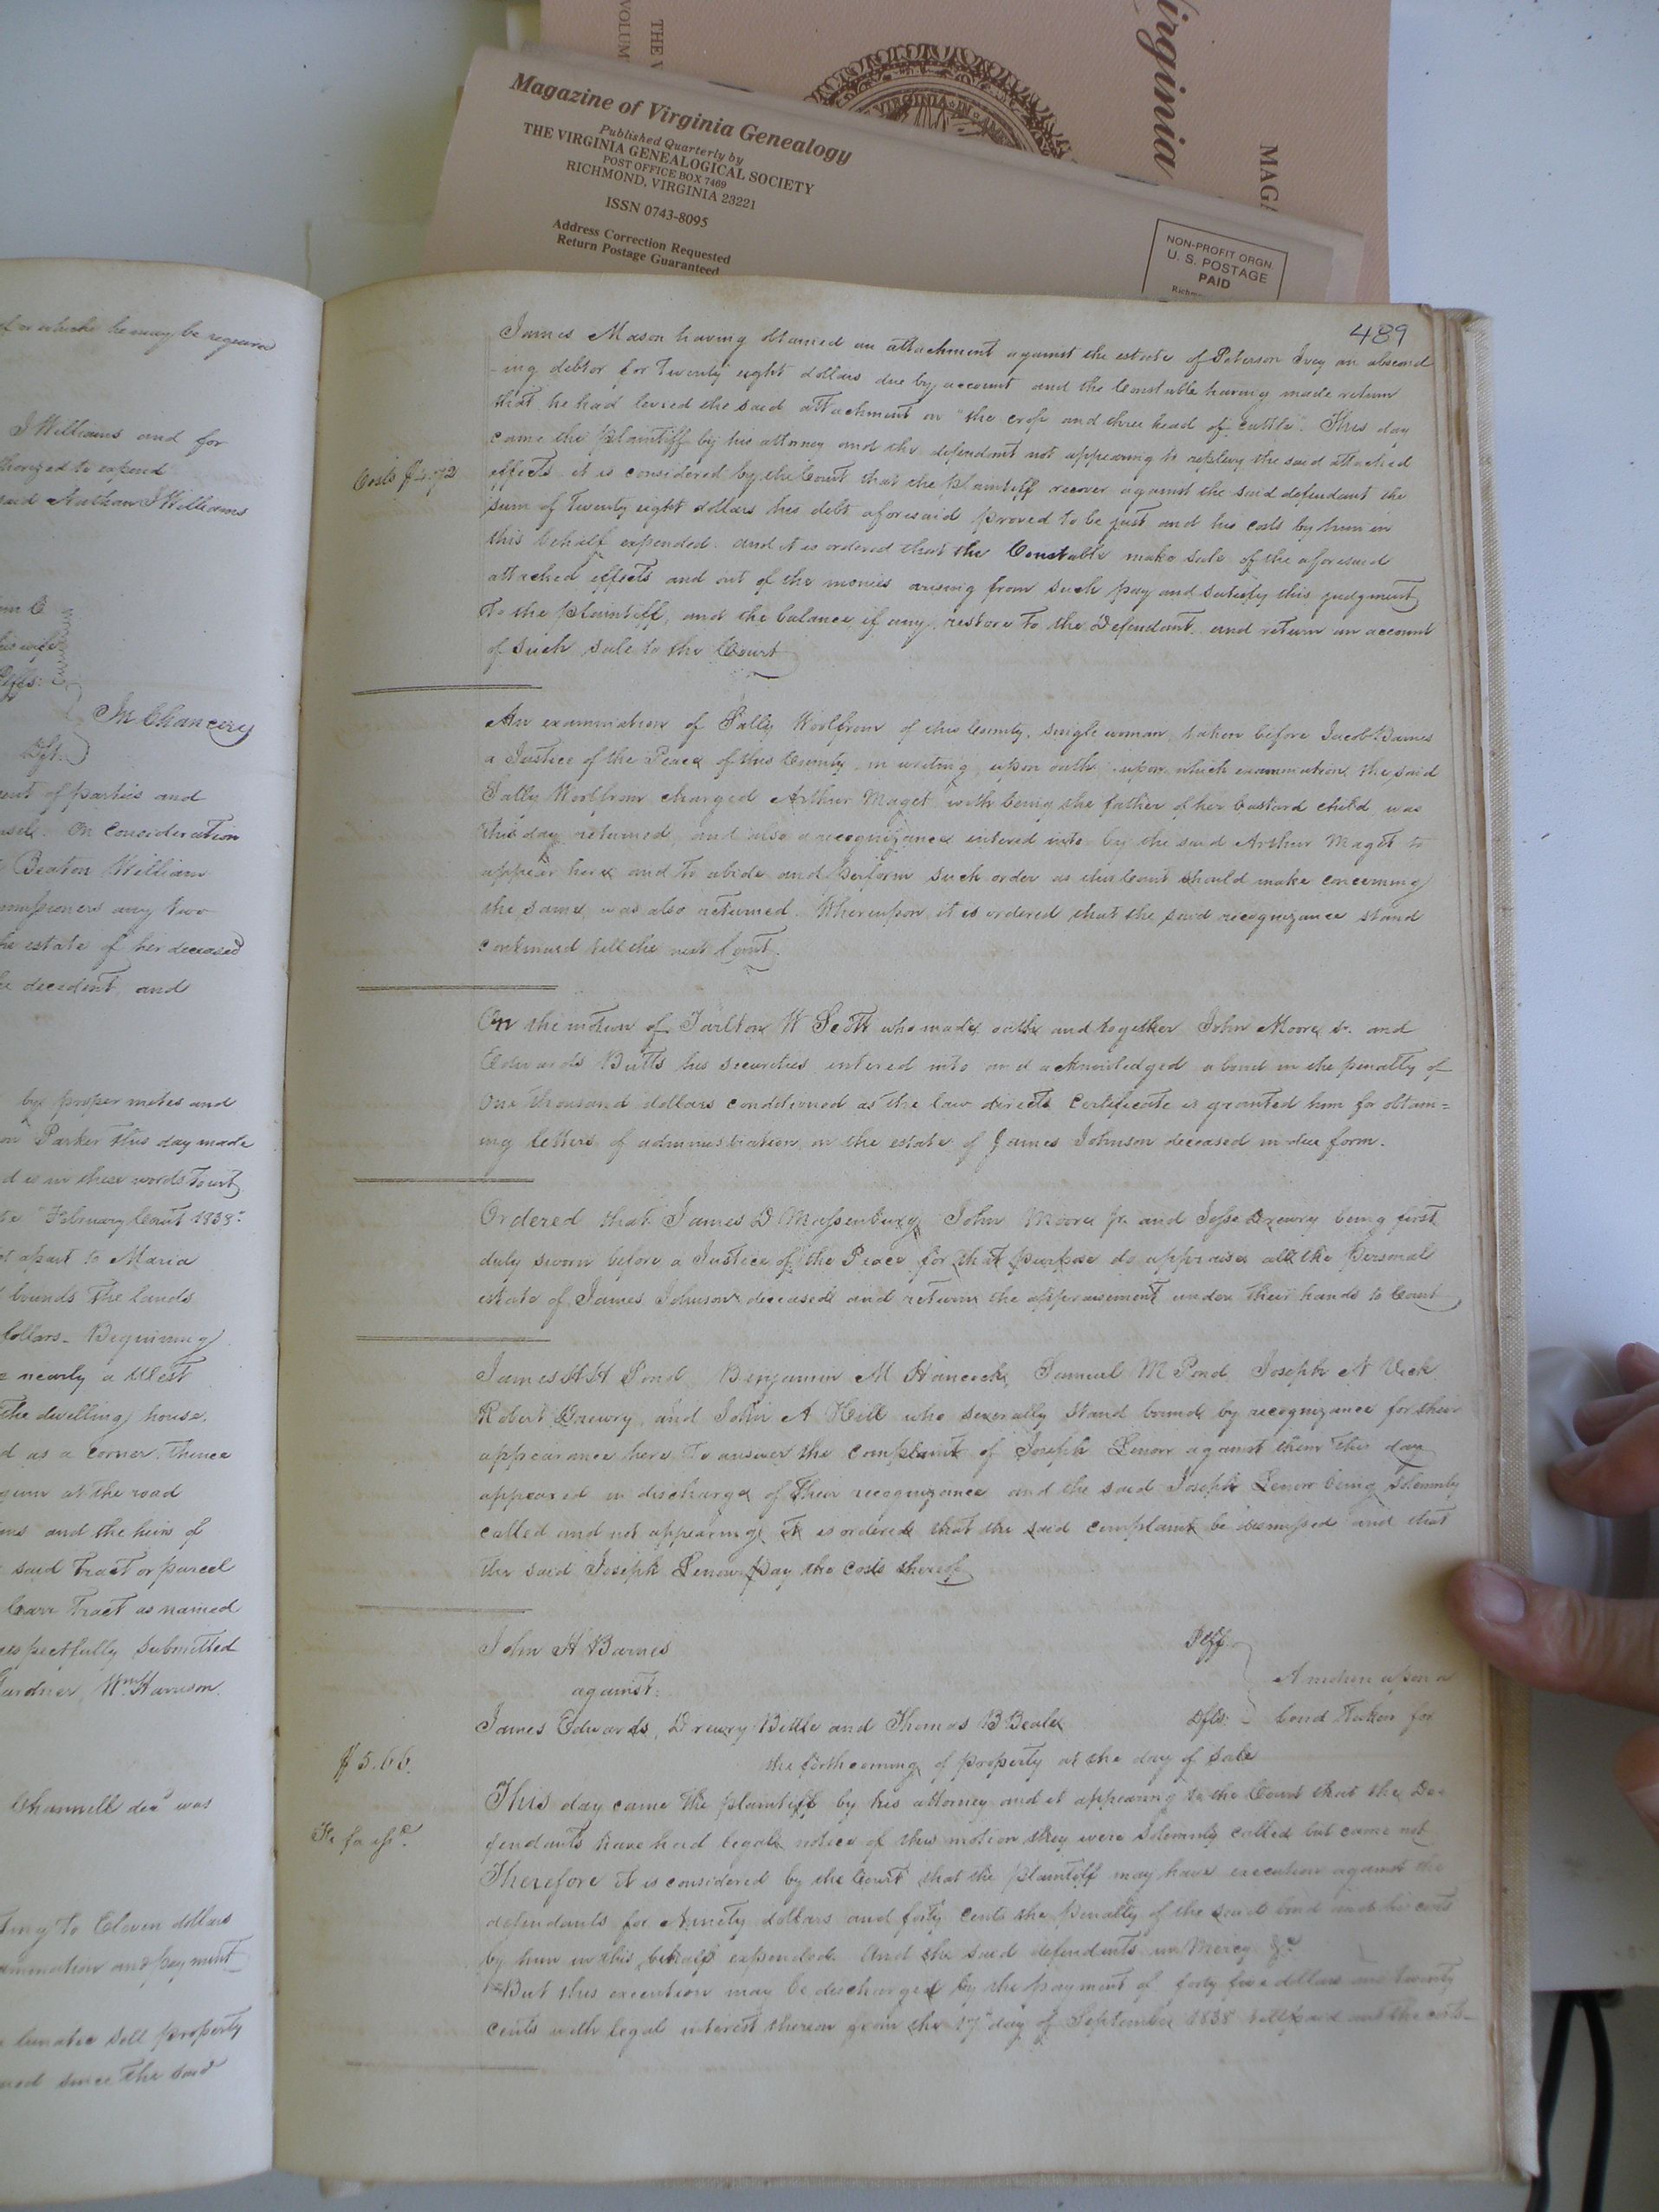 THE V
VOLUM
Virginia
MAGA
VIRGINIA IN
Magazine of Virginia Genealogy
Published Quarterly by
THE VIRGINIA GENEALOGICAL SOCIETY
POST OFFICE BOX 7469
RICHMOND, VIRGINIA 23221
ISSN 0743-8095
Address Correction Requested
Return Postage Guaranteed
NON-PROFIT ORGN.
U. S. POSTAGE
PAID
Richm
he may be required
J Williams and for
thorized to expend
said Nathan J Williams
his wife
Plffs:
In Chancery
Dft.
ent of parties and
nsel. On Consideration
Beaton William
mmissioners any two
he estate of her deceased
decedent, and
by proper metes and
on Parker this day made
d is in these words Towit
"February Court 1838"
et apart to Maria
bounds The lands
dollars - Beginning
nearly a West
The dwelling house,
d as a corner, thence
gum at the road
and the heirs of
said Tract or parcel
Carr Tract as named
respectfully submitted
Gardner, Wm Harrison
Channell decd was
ting to Eleven dollars
amination and payment
lunatic sell property
since the said
489
James Mason having obtained an attachment against the estate of Peterson Ivey an abscond
-ing debtor for Twenty eight dollars due by account and the Constable having made return
that he had levied the said attachment on "the crop and three head of cattle". This day
came the plaintiff by his attorney and the defendant not appearing to replevy the said attached
Costs $4.72
effects it is considered by the Court that the plaintiff recover against the said defendant the
sum of Twenty eight dollars his debt aforesaid proved to be just and his costs by him in
this behalf expended. and it is ordered that the Constable make sale of the aforesaid
attached effects and out of the monies arising from such pay and satisfy this judgment
To the plaintiff, and the balance, if any, restore to the Defendant and return an account
of such sale to the Court
An examination of Sally Woolfrom of this County, single woman, taken before Jacob Barnes
a Justice of the Peace of this County in writing, upon oath, upon which examination the said
Sally Woolfrom charged Arthur Maget with being the father of her bastard child was
this day returned, and also a recognizance entered into by the said Arthur Maget to
appear here and to abide and perform such order as this Court should make concerning
the same was also returned. Whereupon it is ordered that the said recognizance stand
continued till the next Court.
On the motion of Tarlton W Scott who made oath and together John Moore sr. and
Edwards Butts his securities entered into and acknowledged a bond in the penalty of
One thousand dollars conditioned as the law directs certificate is granted him for obtain=
ing letters of administration on the estate of James Johnson deceased in due form.
Ordered that James D Massenburg John Moore jr. and Jesse Drewry being first
duly sworn before a Justice of the Peace for that purpose do appraise all the personal
estate of James Johnson deceased and return the appraisement under their hands to Court
James H H Pond, Benjamin M Hancock, Samuel M Pond, Joseph N Vick
Robert Drewry, and John A Hill who severally stand bound by recognizance for their
appearance here To answer the complaint of Joseph Lenow against them this day
appeared in discharge of their recognizance and the said Joseph Lenow being solemnly
called and not appearing it is ordered that the said complaint be dismissed and that
the said Joseph Lenow pay the costs thereof
John H Barnes Plff.
against A motion upon a
James Edwards, Drewry Bittle and Thomas B Beale Dfts: bond taken for
$5.66. the forthcoming of property at the day of sale
This day came the plaintiff by his attorney and it appearing to the Court that the De=
Fi fa issd.
fendants have had legal notice of this motion they were solemnly called but came not
Therefore it is considered by the Court that the plaintiff may have execution against the
defendants for Ninety dollars and forty cents the penalty of the said bond and his costs
by him in this behalf expended. And the said defendants in Mercy &c
But this execution may be discharged by the payment of forty five dollars and twenty
cents with legal interest thereon from the 17th day of September 1838 till paid and the costs